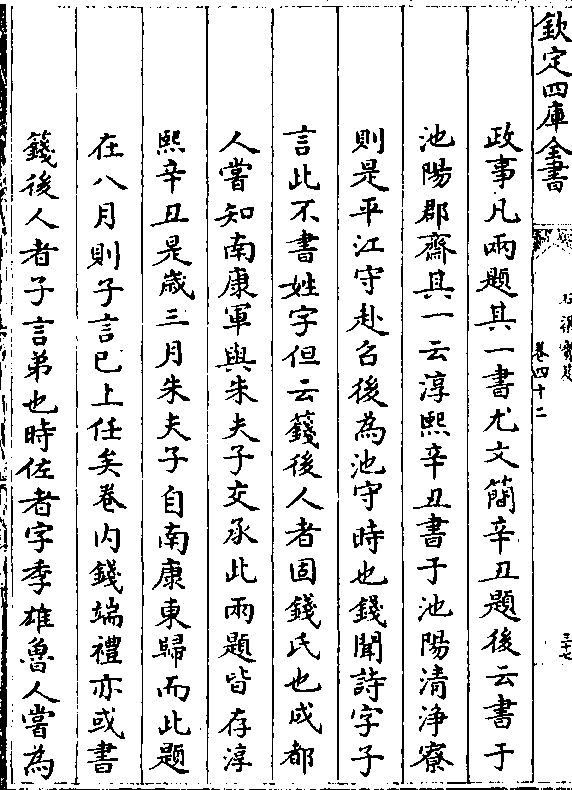 欽定四庫全書
卷四十二
三十七
政事凡兩題其一書尤文簡辛丑題後云書于
池陽郡齋其一云淳熙辛丑書于池陽清浄寮
則是平江守赴召後為池守時也錢聞詩字子
言此不書姓字但云籛後人者固錢氏也成都
人嘗知南康軍與朱夫子交承此兩題皆存淳
熙辛丑是歳三月朱夫子自南康東歸而此題
在八月則子言已上任矣卷内錢端禮亦或書
籛後人者子言弟也時佐者字季雄魯人嘗為